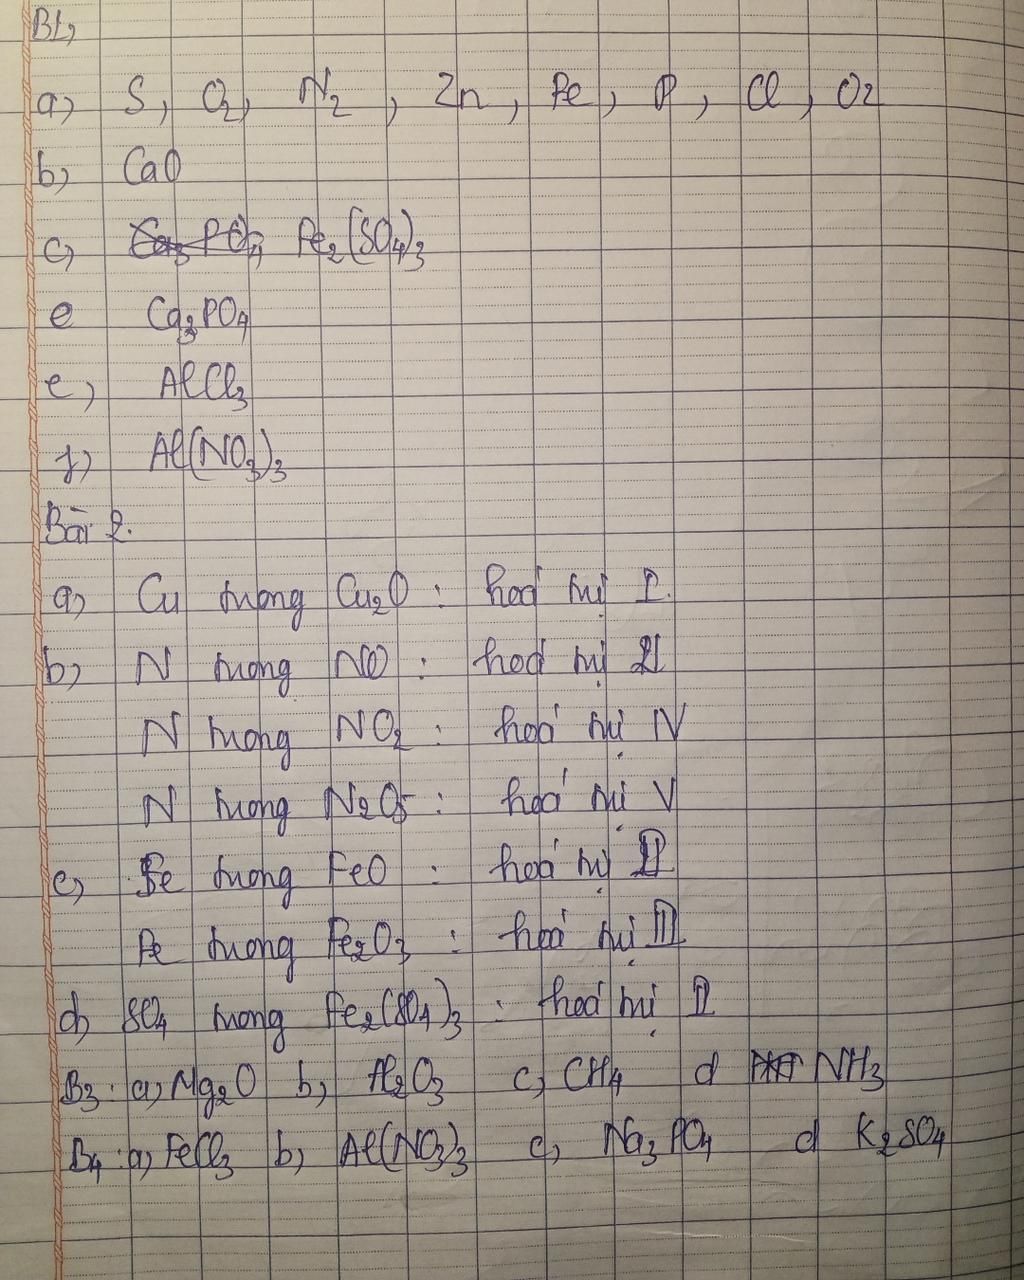 B1,
a, S, O2, N2, Zn, Fe, P, Cl, O2
b, CaO
c, Ca3 PO4 Fe2(SO4)3
e Ca3PO4
e, AlCl3
f) Al(NO3)3
Bài 2.
a, Cu trong Cu2O : hoá trị I.
b, N trong NO : hoá trị II
N trong NO2 : hoá trị IV
N trong N2O5 : hoá trị V
c, Fe trong FeO : hoá trị II
Fe trong Fe2O3 : hoá trị III
d, SO4 trong Fe2(SO4)3 : hoá trị II
B3 : a, Mg2O b, Al2O3 c, CH4 d NH3
B4 : a, FeCl3 b, Al(NO3)3 c, Na3 PO4 d K2SO4